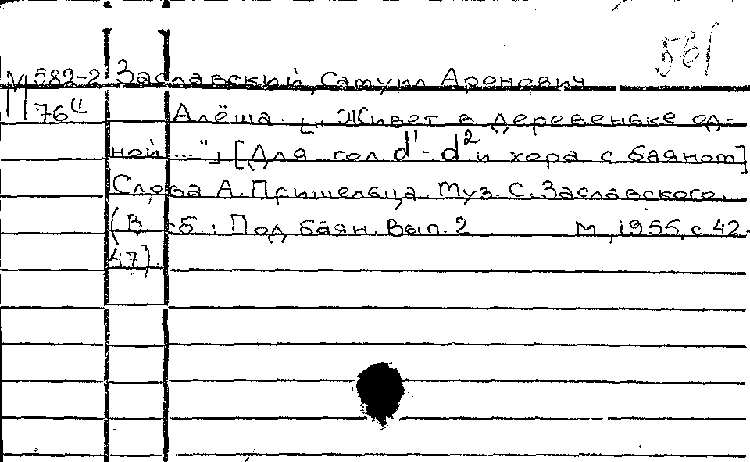 561
М 582-2 Заславский, Самуил Аронович
76 Алёша. „Живет в деревеньке од-
ной ...", [Для гол. d¹-d² и хора с баяном]
Слова А. Пришельца. Муз. С. Заславского.
(В сб.: Под баян. Вып. 2 М., 1955, с. 42-
47).